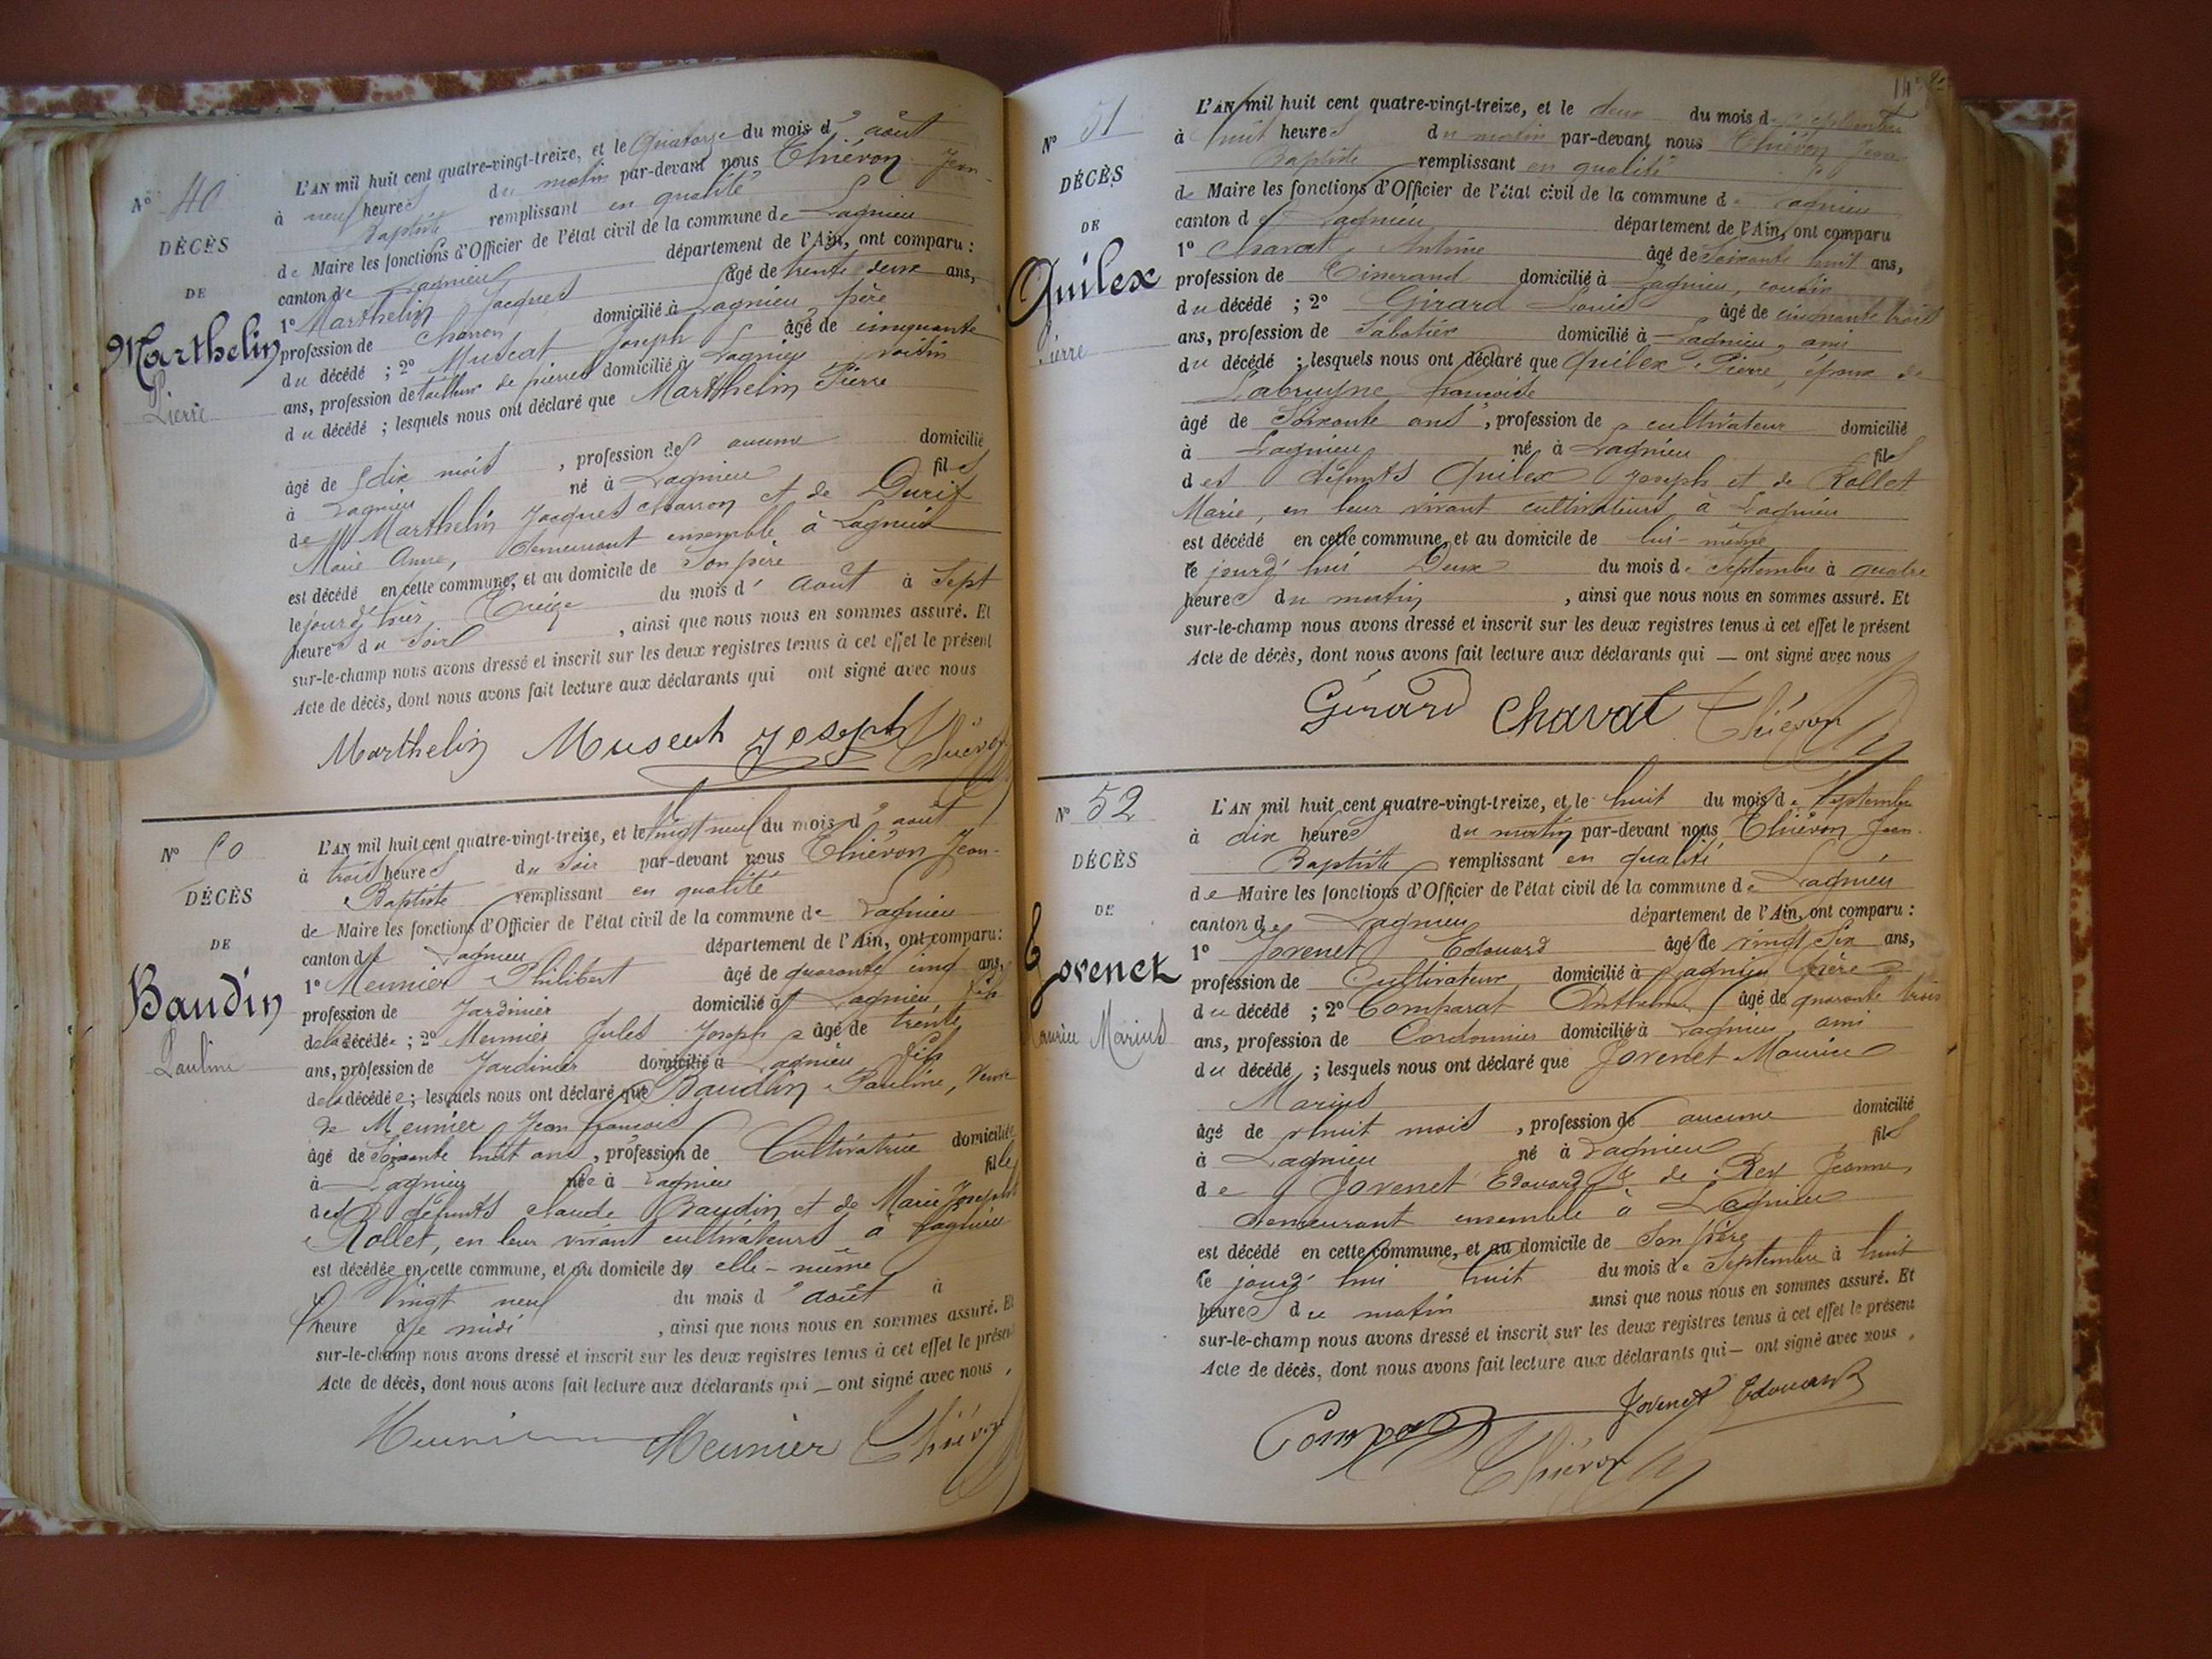 Nº 40
DÉCÈS
DE
Marthelin
Pierre
L'AN mil huit cent quatre-vingt-treize, et le Quatorze du mois d' août
à neuf heures du matin par-devant nous Thiévon Jean-
Baptiste remplissant en qualité
de Maire les fonctions d'Officier de l'état civil de la commune de Lagnieu
canton de Lagnieu département de l'Ain, ont comparu :
1º Marthelin Jacques âgé de trente deux ans,
profession de charron domicilié à Lagnieu, père
du décédé ; 2º Muscat Joseph âgé de cinquante
ans, profession de tailleur de pierres domicilié à Lagnieu voisin
du décédé ; lesquels nous ont déclaré que Marthelin Pierre
âgé de dix mois , profession de aucune domicilié
à Lagnieu né à Lagnieu fils
de Marthelin Jacques charron et de Durif
Marie Anne, demeurant ensemble à Lagnieu
est décédé en cette commune, et au domicile de Son père
le jour d'hier Treize du mois d' août à Sept
heures du Soir , ainsi que nous nous en sommes assuré. Et
sur-le-champ nous avons dressé et inscrit sur les deux registres tenus à cet effet le présent
Acte de décès, dont nous avons fait lecture aux déclarants qui ont signé avec nous
Marthelin Muscat Joseph Thiévon
Nº 50
DÉCÈS
DE
Baudin
Pauline
L'AN mil huit cent quatre-vingt-treize, et le Vingt neuf du mois d' août
à trois heures du Soir par-devant nous Thiévon Jean-
Baptiste remplissant en qualité
de Maire les fonctions d'Officier de l'état civil de la commune de Lagnieu
canton de Lagnieu département de l'Ain, ont comparu :
1º Meunier Philibert âgé de quarante cinq ans,
profession de Jardinier domicilié à Lagnieu, fils
de la décédée ; 2º Meunier Jules Joseph âgé de trente
ans, profession de Jardinier domicilié à Lagnieu fils
de la décédée ; lesquels nous ont déclaré que Baudin Pauline, Veuve
de Meunier Jean François
âgé de Soixante huit ans , profession de Cultivatrice domiciliée
à Lagnieu née à Lagnieu fille
des défunts Claude Baudin et de Marie Josephte
Rollet, en leur vivant cultivateurs à Lagnieu
est décédée en cette commune, et au domicile de elle-même
le Vingt neuf du mois d' août à
heure de midi , ainsi que nous nous en sommes assuré. Et
sur-le-champ nous avons dressé et inscrit sur les deux registres tenus à cet effet le présent
Acte de décès, dont nous avons fait lecture aux déclarants qui — ont signé avec nous
Meunier Meunier Thiévon
Nº 51
DÉCÈS
DE
Quilex
Pierre
L'AN mil huit cent quatre-vingt-treize, et le deux du mois de Septembre
à huit heures du matin par-devant nous Thiévon Jean
Baptiste remplissant en qualité
de Maire les fonctions d'Officier de l'état civil de la commune de Lagnieu
canton de Lagnieu département de l'Ain, ont comparu
1º Chavat Antoine âgé de Soixante huit ans,
profession de Tisserand domicilié à Lagnieu, cousin
du décédé ; 2º Girard Louis âgé de cinquante trois
ans, profession de Sabotier domicilié à Lagnieu, ami
du décédé ; lesquels nous ont déclaré que Quilex Pierre, époux de
Labruyne Françoise
âgé de Soixante ans , profession de cultivateur domicilié
à Lagnieu né à Lagnieu fils
des défunts Quilex Joseph et de Rollet
Marie, en leur vivant cultivateurs à Lagnieu
est décédé en cette commune, et au domicile de lui-même
le jour d'hui Deux du mois de Septembre à quatre
heures du matin , ainsi que nous nous en sommes assuré. Et
sur-le-champ nous avons dressé et inscrit sur les deux registres tenus à cet effet le présent
Acte de décès, dont nous avons fait lecture aux déclarants qui — ont signé avec nous
Girard Chavat Thiévon
Nº 52
DÉCÈS
DE
Jovenet
Maurice Marius
L'AN mil huit cent quatre-vingt-treize, et le huit du mois de Septembre
à dix heures du matin par-devant nous Thiévon Jean-
Baptiste remplissant en qualité
de Maire les fonctions d'Officier de l'état civil de la commune de Lagnieu
canton de Lagnieu département de l'Ain, ont comparu :
1º Jovenet Edouard âgé de vingt Six ans,
profession de Cultivateur domicilié à Lagnieu père
du décédé ; 2º Comparat Anthelme âgé de quarante trois
ans, profession de Cordonnier domicilié à Lagnieu, ami
du décédé ; lesquels nous ont déclaré que Jovenet Maurice
Marius
âgé de huit mois , profession de aucune domicilié
à Lagnieu né à Lagnieu fils
de Jovenet Edouard et de Rey Jeanne,
demeurant ensemble à Lagnieu
est décédé en cette commune, et au domicile de Son père
le jour d'hui huit du mois de Septembre à huit
heures du matin ainsi que nous nous en sommes assuré. Et
sur-le-champ nous avons dressé et inscrit sur les deux registres tenus à cet effet le présent
Acte de décès, dont nous avons fait lecture aux déclarants qui — ont signé avec nous.
Jovenet Edouard
Comparat
Thiévon